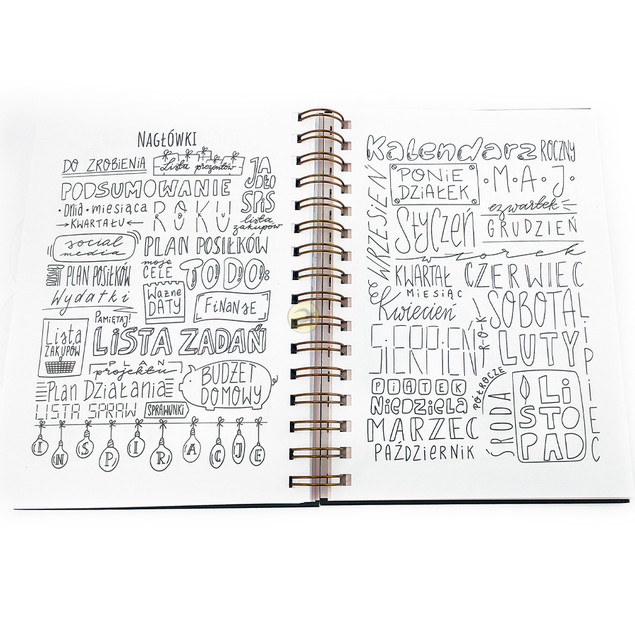 NAGŁÓWKI
DO ZROBIENIA
Lista prezentów
JADŁOSPIS
PODSUMOWANIE
• dnia • miesiąca
ROKU
lista zakupów
→ KWARTAŁU ←
social media
PLAN POSIŁKÓW
moje CELE
TO DO:
PLAN POSIŁKÓW
Wydatki
Ważne DATY
FiNANSE
PAMIĘTAJ!
Lista ZAKUPÓW
LISTA ZADAŃ
PLAN projektu
BUDŻET DOMOWY
Plan Działania
LISTA SPRAW
SPRAWUNKI
INSPIRACJE
Kalendarz ROCZNY
WRZESIEŃ
PONIEDZIAŁEK
• M • A • J •
czwartek
STYCZEŃ
GRUDZIEŃ
wtorek
KWARTAŁ
CZERWIEC
MIESIĄC
Kwiecień
SOBOTA
SIERPIEŃ
ROK
LUTY
LIPIEC
PIĄTEK
PÓŁROCZE
NIEDZIELA
ŚRODA
LISTOPAD
MARZEC
PAŹDZIERNIK